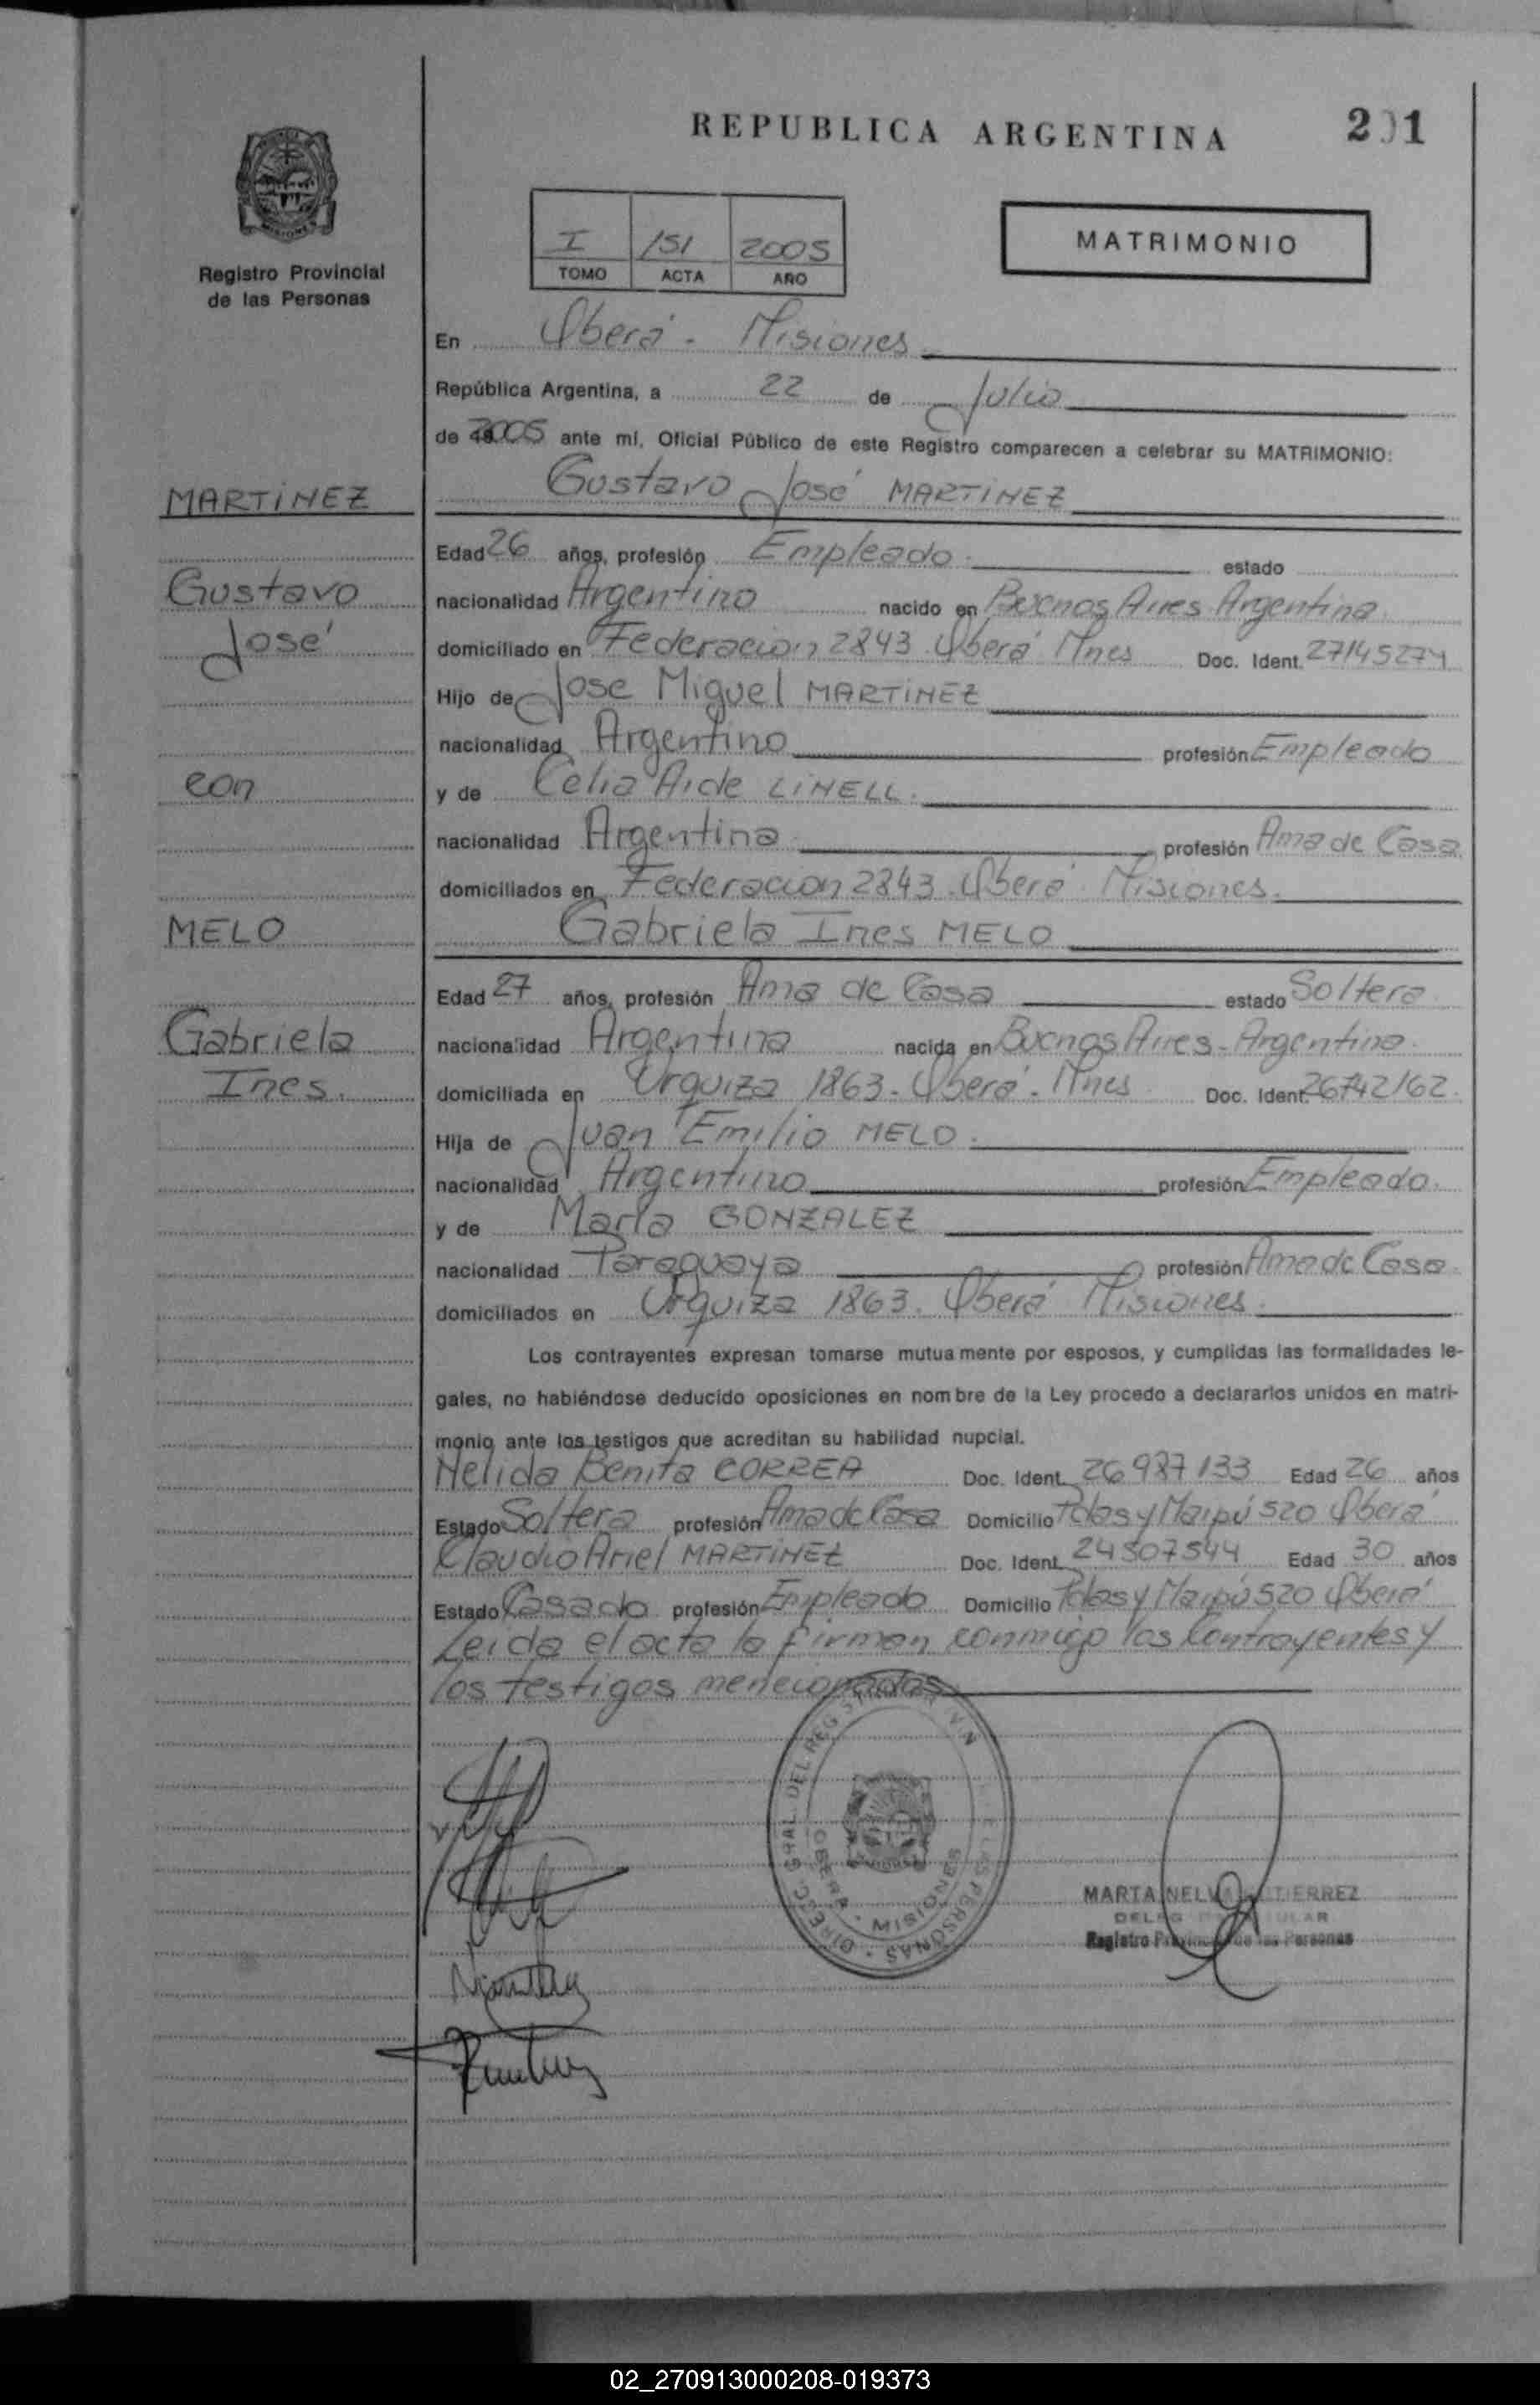 REPUBLICA ARGENTINA
201
Registro Provincial
de las Personas
I 151 2005
TOMO ACTA AÑO
MATRIMONIO
En Oberá - Misiones
República Argentina, a 22 de Julio
de 2005 ante mí, Oficial Público de este Registro comparecen a celebrar su MATRIMONIO:
MARTINEZ
Gustavo José MARTINEZ
Edad 26 años, profesión Empleado. estado
Gustavo
nacionalidad Argentino nacido en Buenos Aires Argentina
José
domiciliado en Federacion 2843 Oberá Mnes Doc. Ident. 27145274
Hijo de Jose Miguel MARTINEZ
nacionalidad Argentino profesión Empleado
con
y de Celia Aide LINELL.
nacionalidad Argentina profesión Ama de Casa
domiciliados en Federacion 2843 Oberá Misiones.
MELO
Gabriela Ines MELO
Edad 27 años, profesión Ama de Casa estado Soltera
Gabriela
nacionalidad Argentina nacida en Buenos Aires - Argentina.
Ines.
domiciliada en Urquiza 1863 - Oberá - Mnes Doc. Ident. 26742162.
Hija de Juan Emilio MELO.
nacionalidad Argentino profesión Empleado.
y de Marta GONZALEZ
nacionalidad Paraguaya profesión Ama de Casa
domiciliados en Urquiza 1863. Oberá Misiones.
Los contrayentes expresan tomarse mutuamente por esposos, y cumplidas las formalidades le-
gales, no habiéndose deducido oposiciones en nombre de la Ley procedo a declararlos unidos en matri-
monio ante los testigos que acreditan su habilidad nupcial.
Nelida Benita CORREA Doc. Ident. 26987133 Edad 26 años
Estado Soltera profesión Ama de Casa Domicilio y Maipú 520 Oberá
Claudio Ariel MARTINEZ Doc. Ident. 24507544 Edad 30 años
Estado Casado profesión Empleado Domicilio y Maipú 520 Oberá
Leida el acta la firman conmigo los Contrayentes y
los testigos menecionados
DIREC. GRAL. DEL REG PERSONAS
OBERA - MISIONES
MARTA NELVA GUTIERREZ
Registro Provincial de las Personas
02_270913000208-019373